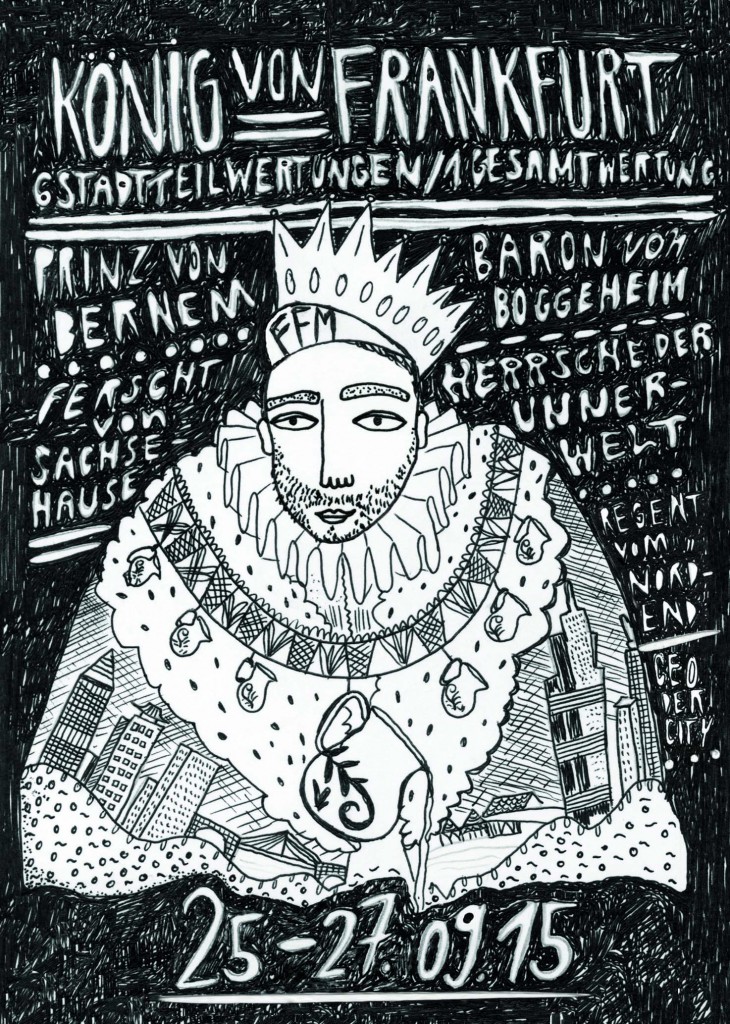 KÖNIG VON FRANKFURT
6 STADTTEILWERTUNGEN/1 GESAMTWERTUNG
PRINZ VON
BERNEM
FERSCHT
VON
SACHSE-
HAUSE
FFM
BARON VON
BOGGEHEIM
HERRSCHE DER
UNNER-
WELT
REGENT
VOM
NORD-
END
CEO
DER
CITY
25.-27.09.15